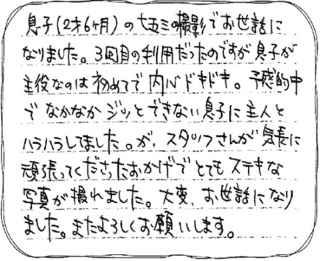 息子(2才6ヶ月)の七五三の撮影でお世話に
なりました。3回目の利用だったのですが息子が
主役なのは初めてで内心ドキドキ。予感的中
でなかなかジッとできない息子に主人と
ハラハラしてました。が、スタッフさんが気長に
頑張ってくださったおかげでとてもステキな
写真が撮れました。大変、お世話になり
ました。またよろしくお願いします。